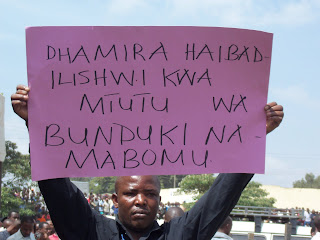 DHAMIRA HAIBAD-
ILISHWI KWA
MTUTU WA
BUNDUKI NA-
MABOMU.